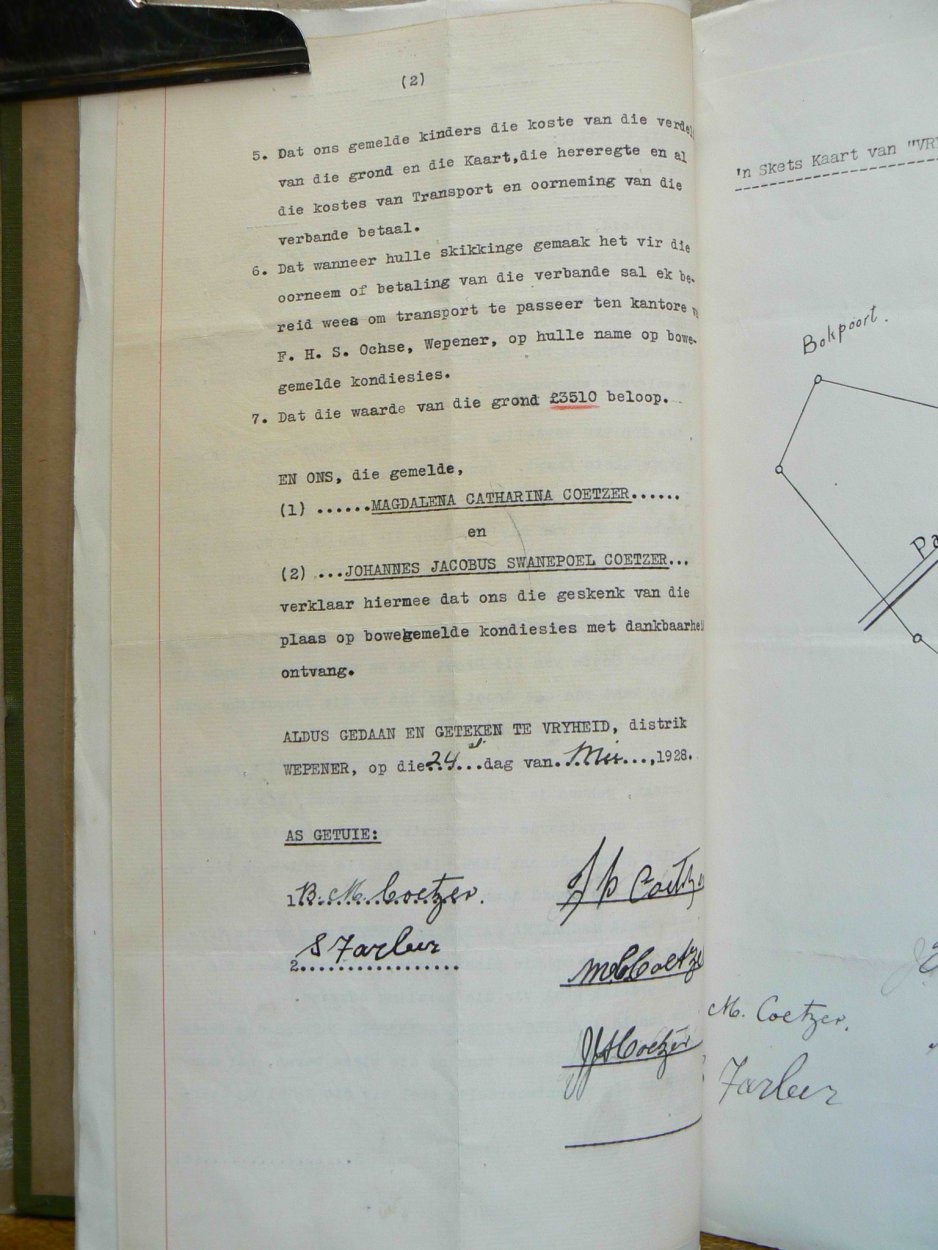 (2)
5. Dat ons gemelde kinders die koste van die verdel
van die grond en die Kaart,die hereregte en al
die kostes van Transport en oorneming van die
verbande betaal.
6. Dat wanneer hulle skikkinge gemaak het vir die
oorneem of betaling van die verbande sal ek be-
reid wees om transport te passeer ten kantore v
F. H. S. Ochse, Wepener, op hulle name op bowe-
gemelde kondiesies.
7. Dat die waarde van die grond £3510 beloop.
EN ONS, die gemelde,
(1) ......MAGDALENA CATHARINA COETZER......
en
(2) ...JOHANNES JACOBUS SWANEPOEL COETZER...
verklaar hiermee dat ons die geskenk van die
plaas op bowegemelde kondiesies met dankbaarhei
ontvang.
ALDUS GEDAAN EN GETEKEN TE VRYHEID, distrik
WEPENER, op die 24 st dag van Mei ...,1928.
AS GETUIE:
1 B. M. Coetzer.
2. S Farber
J P Coetze
M C Coetze
J J S Coetzer
'n Skets Kaart van "VR
Bokpoort.
Pa
M. Coetzer.
Farber